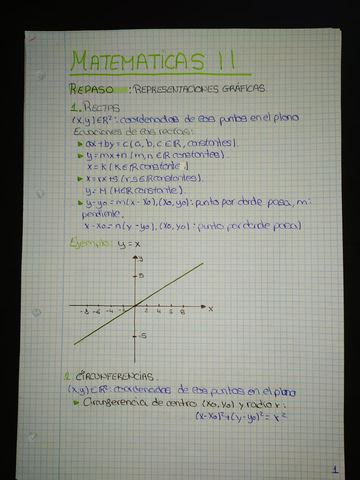 MATEMATICAS II
REPASO: REPRESENTACIONES GRÁFICAS.
1. RECTAS
(x,y) ∈ R²: coordenadas de los puntos en el plano
Ecuaciones de las rectas:
▸ ax + by = c (a, b, c ∈ R, constantes).
▸ y = mx + n (m, n ∈ R constantes).
x = K (K ∈ R constante.)
▸ x = rx + s (r, s ∈ R constantes)
y = M (M ∈ R constante).
▸ y - y₀ = m (x - x₀), (x₀, y₀): punto por donde pasa, m:
pendiente.
x - x₀ = n (y - y₀), (x₀, y₀): punto por donde pasa)
Ejemplo: y = x
y
5
-8 -6 -4 -2 2 4 6 8 x
-5
2. CIRCUNFERENCIAS.
(x,y) ∈ R²: coordenadas de los puntos en el plano
▸ Circunferencia de centro (x₀, y₀) y radio r:
(x-x₀)² + (y-y₀)² = r²
1